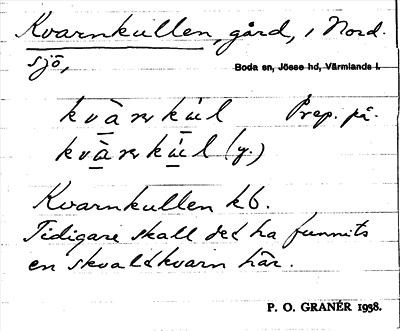 Kvarnkullen, gård, i Nord-
sjö,
Boda sn, Jösse hd, Värmlands l.
kvàrnkúl Prep. på.
kvàrnkúl (y.)
Kvarnkullen kb.
Tidigare skall det ha funnits
en skvaltkvarn här.
P. O. GRANÉR 1938.